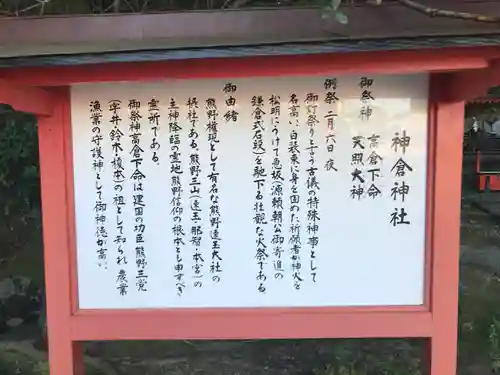 神倉神社
御祭神 高倉下命
天照大神
例祭 二月六日夜
御灯祭りと言う古儀の特殊神事として
名高く、白装束に身を固めた祈願者が神火を
松明にうけて急坂（源頼朝公御寄進の
鎌倉式石段）を馳下る壮観な火祭である。
御由緒
熊野権現として有名な熊野速玉大社の
摂社である。熊野三山（速玉・那智・本宮）の
主神降臨の霊地、熊野信仰の根本とも申すべき
霊所である。
御祭神高倉下命は建国の功臣、熊野三党
（宇井・鈴木・榎本）の祖として知られ、農業
漁業の守護神として御神徳が高い。